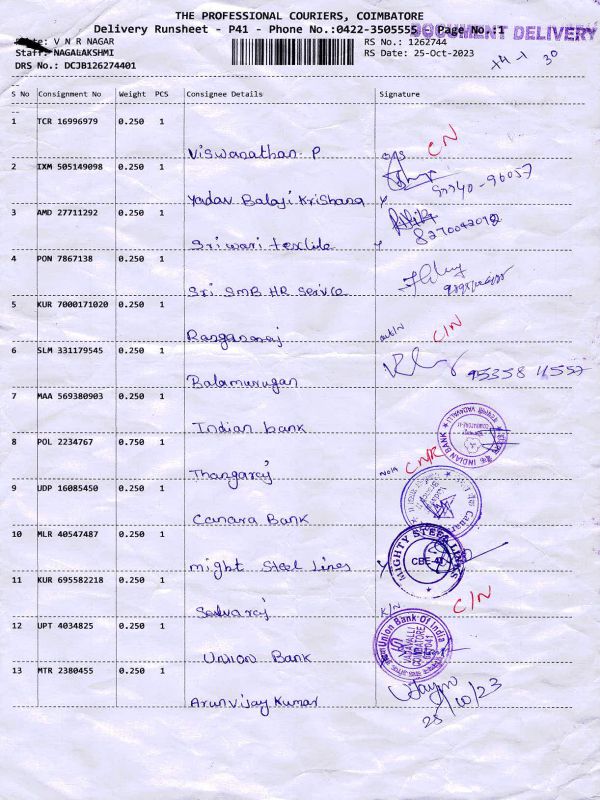 THE PROFESSIONAL COURIERS, COIMBATORE
Delivery Runsheet - P41 - Phone No.:0422-3505555 Page No.:1
DOCUMENT DELIVERY
V N R NAGAR
RS No.: 1262744
Staff: NAGALAKSHMI
RS Date: 25-Oct-2023
DRS No.: DCJB126274401
S No Consignment No Weight PCS Consignee Details Signature
1 TCR 16996979 0.250 1
Viswanathan P
C/N
2 IXM 505149098 0.250 1
Yadav Balaji Krishana
97740-96057
3 AMD 27711292 0.250 1
Sri wari textile
4 PON 7867138 0.250 1
Sri SMB HR Service
5 KUR 7000171020 0.250 1
Rangasaraj
C/N
6 SLM 331179545 0.250 1
Balamurugan
95358 11557
7 MAA 569380903 0.250 1
Indian bank
INDIAN BANK
8 POL 2234767 0.750 1
Thangaraj
CN/R
9 UDP 16085450 0.250 1
Canara Bank
Canara
10 MLR 40547487 0.250 1
might Steel lines
MIGHTY STEEL LINES
CBE-41
11 KUR 695582218 0.250 1
Selvaraj
C/N
12 UPT 4034825 0.250 1
Union Bank
Union Bank Of India
VADAVALLI
COIMBATORE
641041
13 MTR 2380455 0.250 1
Arunvijay Kumar
25/10/23